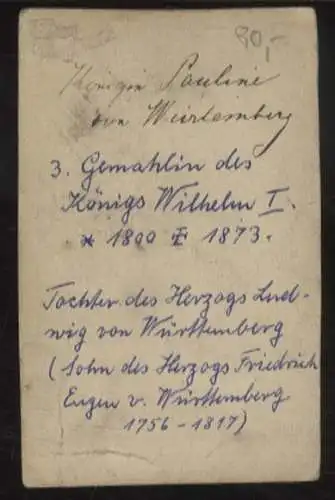 90,-
Königin Pauline
von Würtemberg
3. Gemahlin des
Königs Wilhelm I.
* 1800 ✠ 1873.
Tochter des Herzogs Lud-
wig von Württemberg
(Sohn des Herzogs Friedrich
Eugen v. Württemberg
1756-1817)